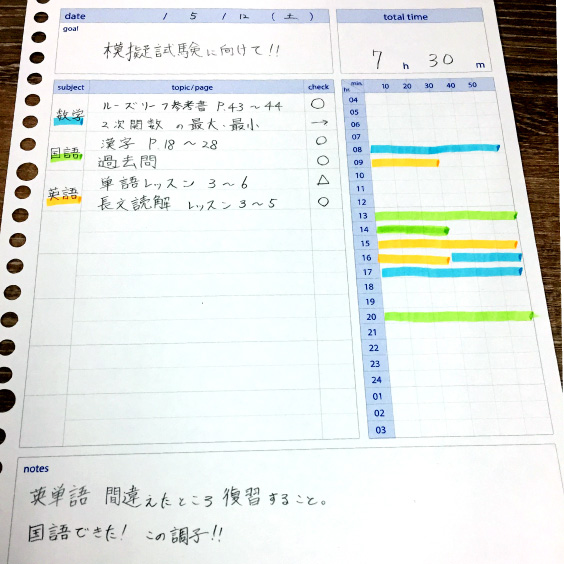 date 1 5 / 12 (土) total time
goal
模擬試験に向けて!! 7 h 30 m
subject topic/page check min. hr. 10 20 30 40 50
数学 ルーズリーフ参考書 P.43〜44 ○
2次関数 の最大・最小 →
国語 漢字 P18〜28 ○
過去問 ○
英語 単語レッスン 3〜6 △
長文読解 レッスン 3〜5 ○
04
05
06
07
08
09
10
11
12
13
14
15
16
17
18
19
20
21
22
23
24
01
02
03
notes
英単語 間違えたところ 復習すること。
国語できた! この調子!!